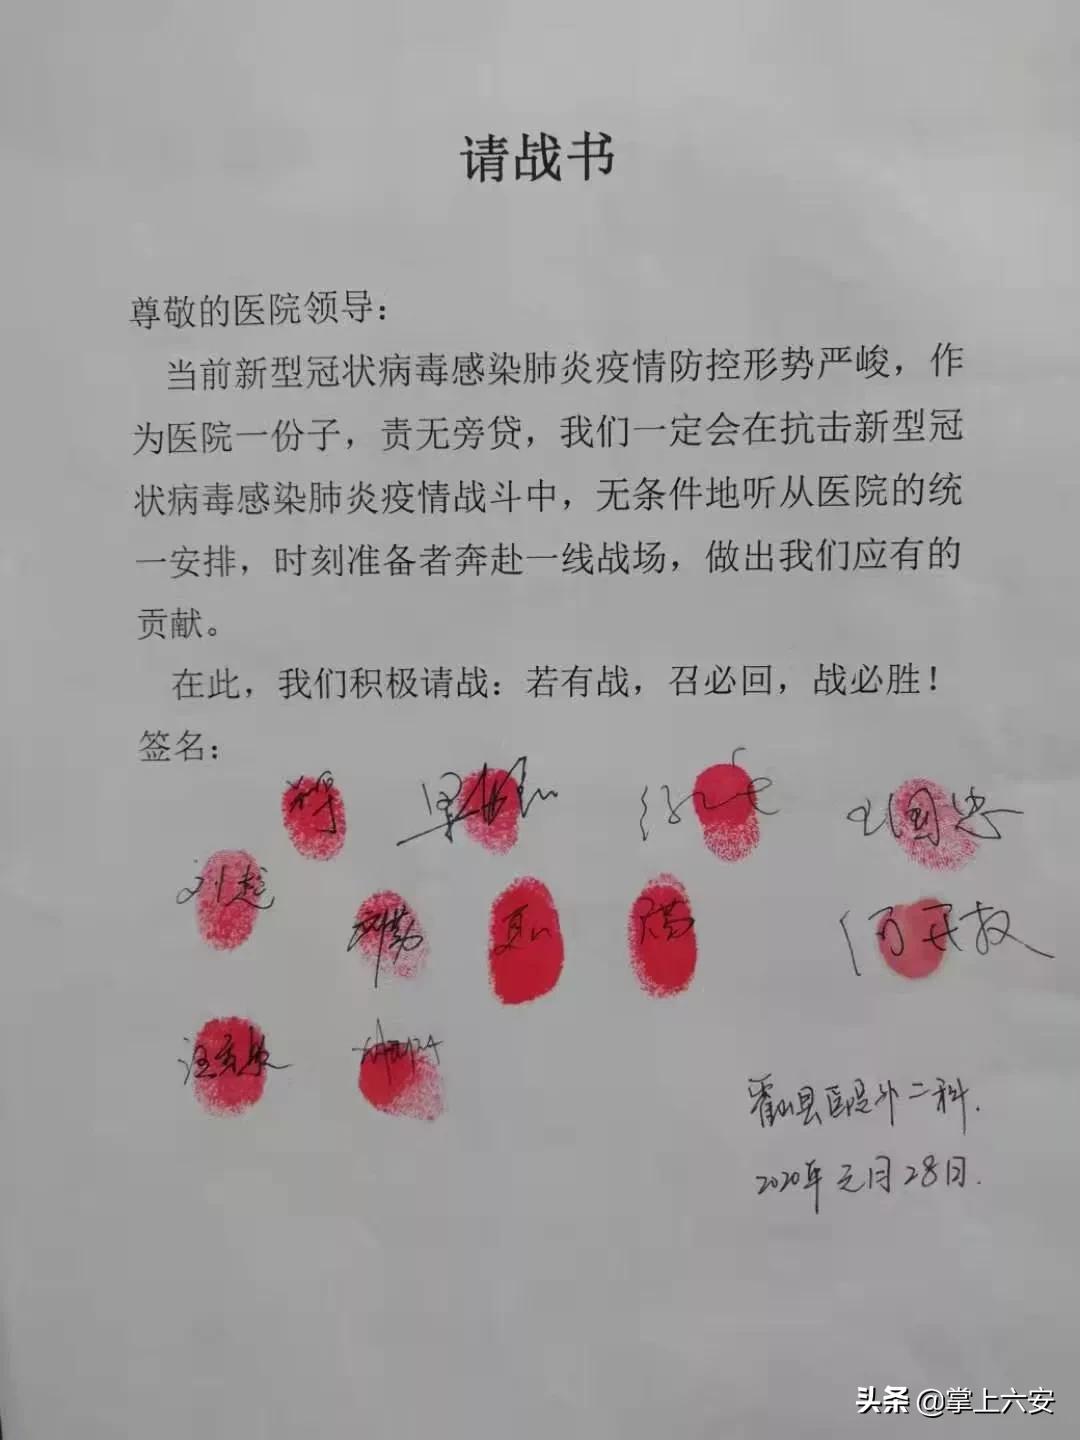 请战书
尊敬的医院领导：
当前新型冠状病毒感染肺炎疫情防控形势严峻，作
为医院一份子，责无旁贷，我们一定会在抗击新型冠
状病毒感染肺炎疫情战斗中，无条件地听从医院的统
一安排，时刻准备者奔赴一线战场，做出我们应有的
贡献。
在此，我们积极请战：若有战，召必回，战必胜！
签名：
王国忠
刘超
霍山县医院外二科.
2020年元月28日.
头条 @掌上六安